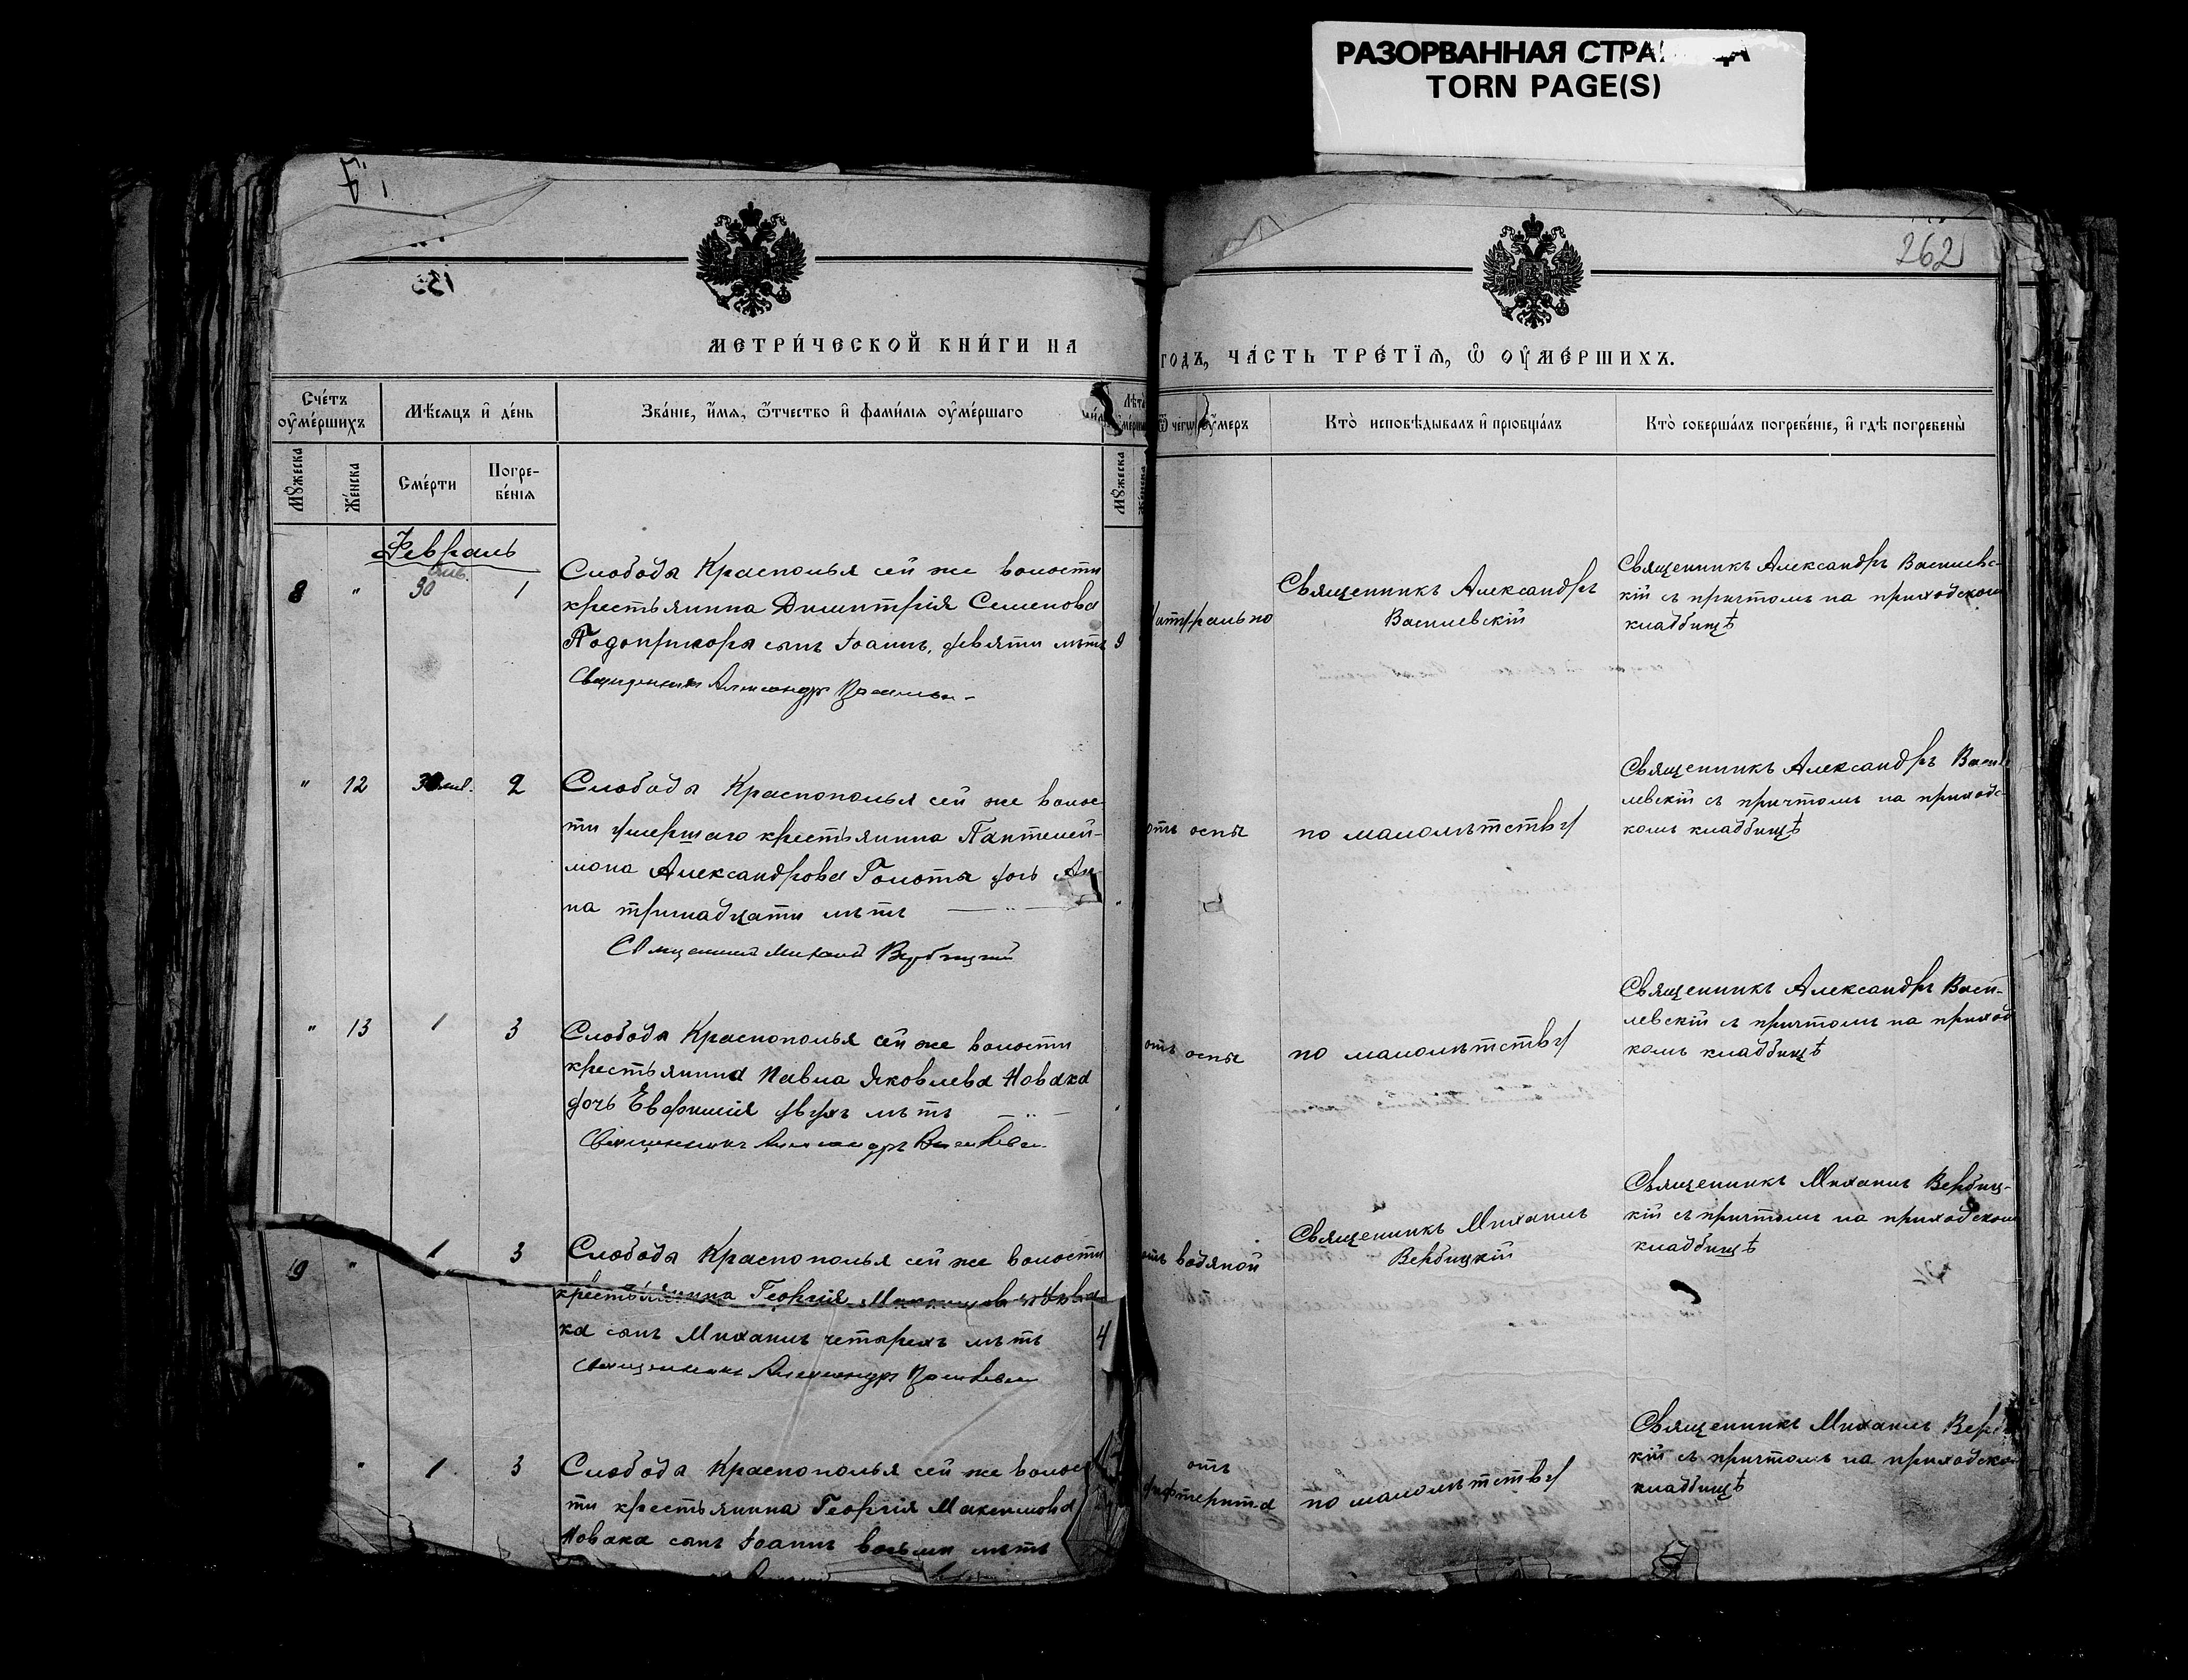 РАЗОРВАННАЯ СТРА ЦА
TORN PAGE(S)
262
МЕТРИ́ЧЕСКОЙ КНИ́ГИ НА
ГОДЪ, ЧА́СТЬ ТРЕ́ТЇѦ, Ѡ҆ ОУ҆МЕ́РШИХЪ.
Сче́тъ оу҆ме́ршихъ
Мѣ́сяцъ и҆ де́нь
Зва́нїе, и҆́мѧ, ѻ҆́тчество и҆ фами́лїѧ оу҆ме́ршагѡ
Лѣ́та
Ѿ чегѡ̀ оу҆́меръ
Кто̀ исповѣ́дывалъ и҆ прїобща́лъ
Кто̀ соверша́лъ погребе́нїе, и҆ гдѣ̀ погребены̀
Мꙋ́жеска
Же́нска
Сме́рти
Погре-
бе́нїѧ
Мꙋ́жеска
Же́нска
Февраль
8 " 30 1
Слобода Краснополья сей же волости
крестьянина Димитрія Семенова
Подопригора сынъ Іоаннъ, девяти лѣтъ
9
Священникъ Александръ
Натурально
Священникъ Александръ
Василевскій
Священникъ Александръ Василевс-
кій съ причтомъ на приходскомъ
кладбищѣ
" 12 янв. 2
Слобода Краснополья сей же волос-
ти умершаго крестьянина Пантелей-
мона Александрова Голота дочь Ан-
на тринадцати лѣтъ
Священникъ Михаилъ Вербицкий
отъ оспы
по малолѣтству
Священникъ Александръ Васи-
левскій съ причтомъ на приходс-
комъ кладбищѣ
" 13 1 3
Слобода Краснополья сей же волости
крестьянина Павла Яковлева Новака
дочь Евфимія двухъ лѣтъ
Священникъ Александръ
отъ оспы
по малолѣтству
Священникъ Александръ Васи-
левскій съ причтомъ на приход
комъ кладбищѣ
9 " 1 3
Слобода Краснополья сей же волости
крестьянина Георгія Максимова Нова-
ка сынъ Михаилъ четырехъ лѣтъ
4
Священникъ Александръ
отъ водяной
Священникъ Михаилъ
Вербицкій
Священникъ Михаилъ Вербиц-
кій съ причтомъ на приходскомъ
кладбищѣ
" 1 3
Слобода Краснополья сей же волос-
ти крестьянина Георгія Максимова
Новака сынъ Іоаннъ восьми лѣтъ
отъ
дифтерита
по малолѣтству
Священникъ Михаилъ Верб
кій съ причтомъ на приходско
кладбищѣ